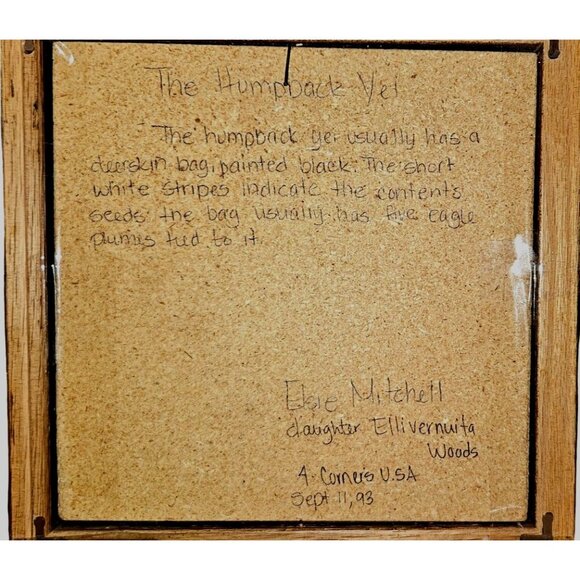 The Humpback Yei
The humpback yei usually has a
deerskin bag, painted black. The short
white stripes indicate the contents
seeds. the bag usually has five eagle
plumes tied to it.
Elsie Mitchell
daughter Ellivernuita
Woods
4 Corners U.S.A
Sept 11, 93